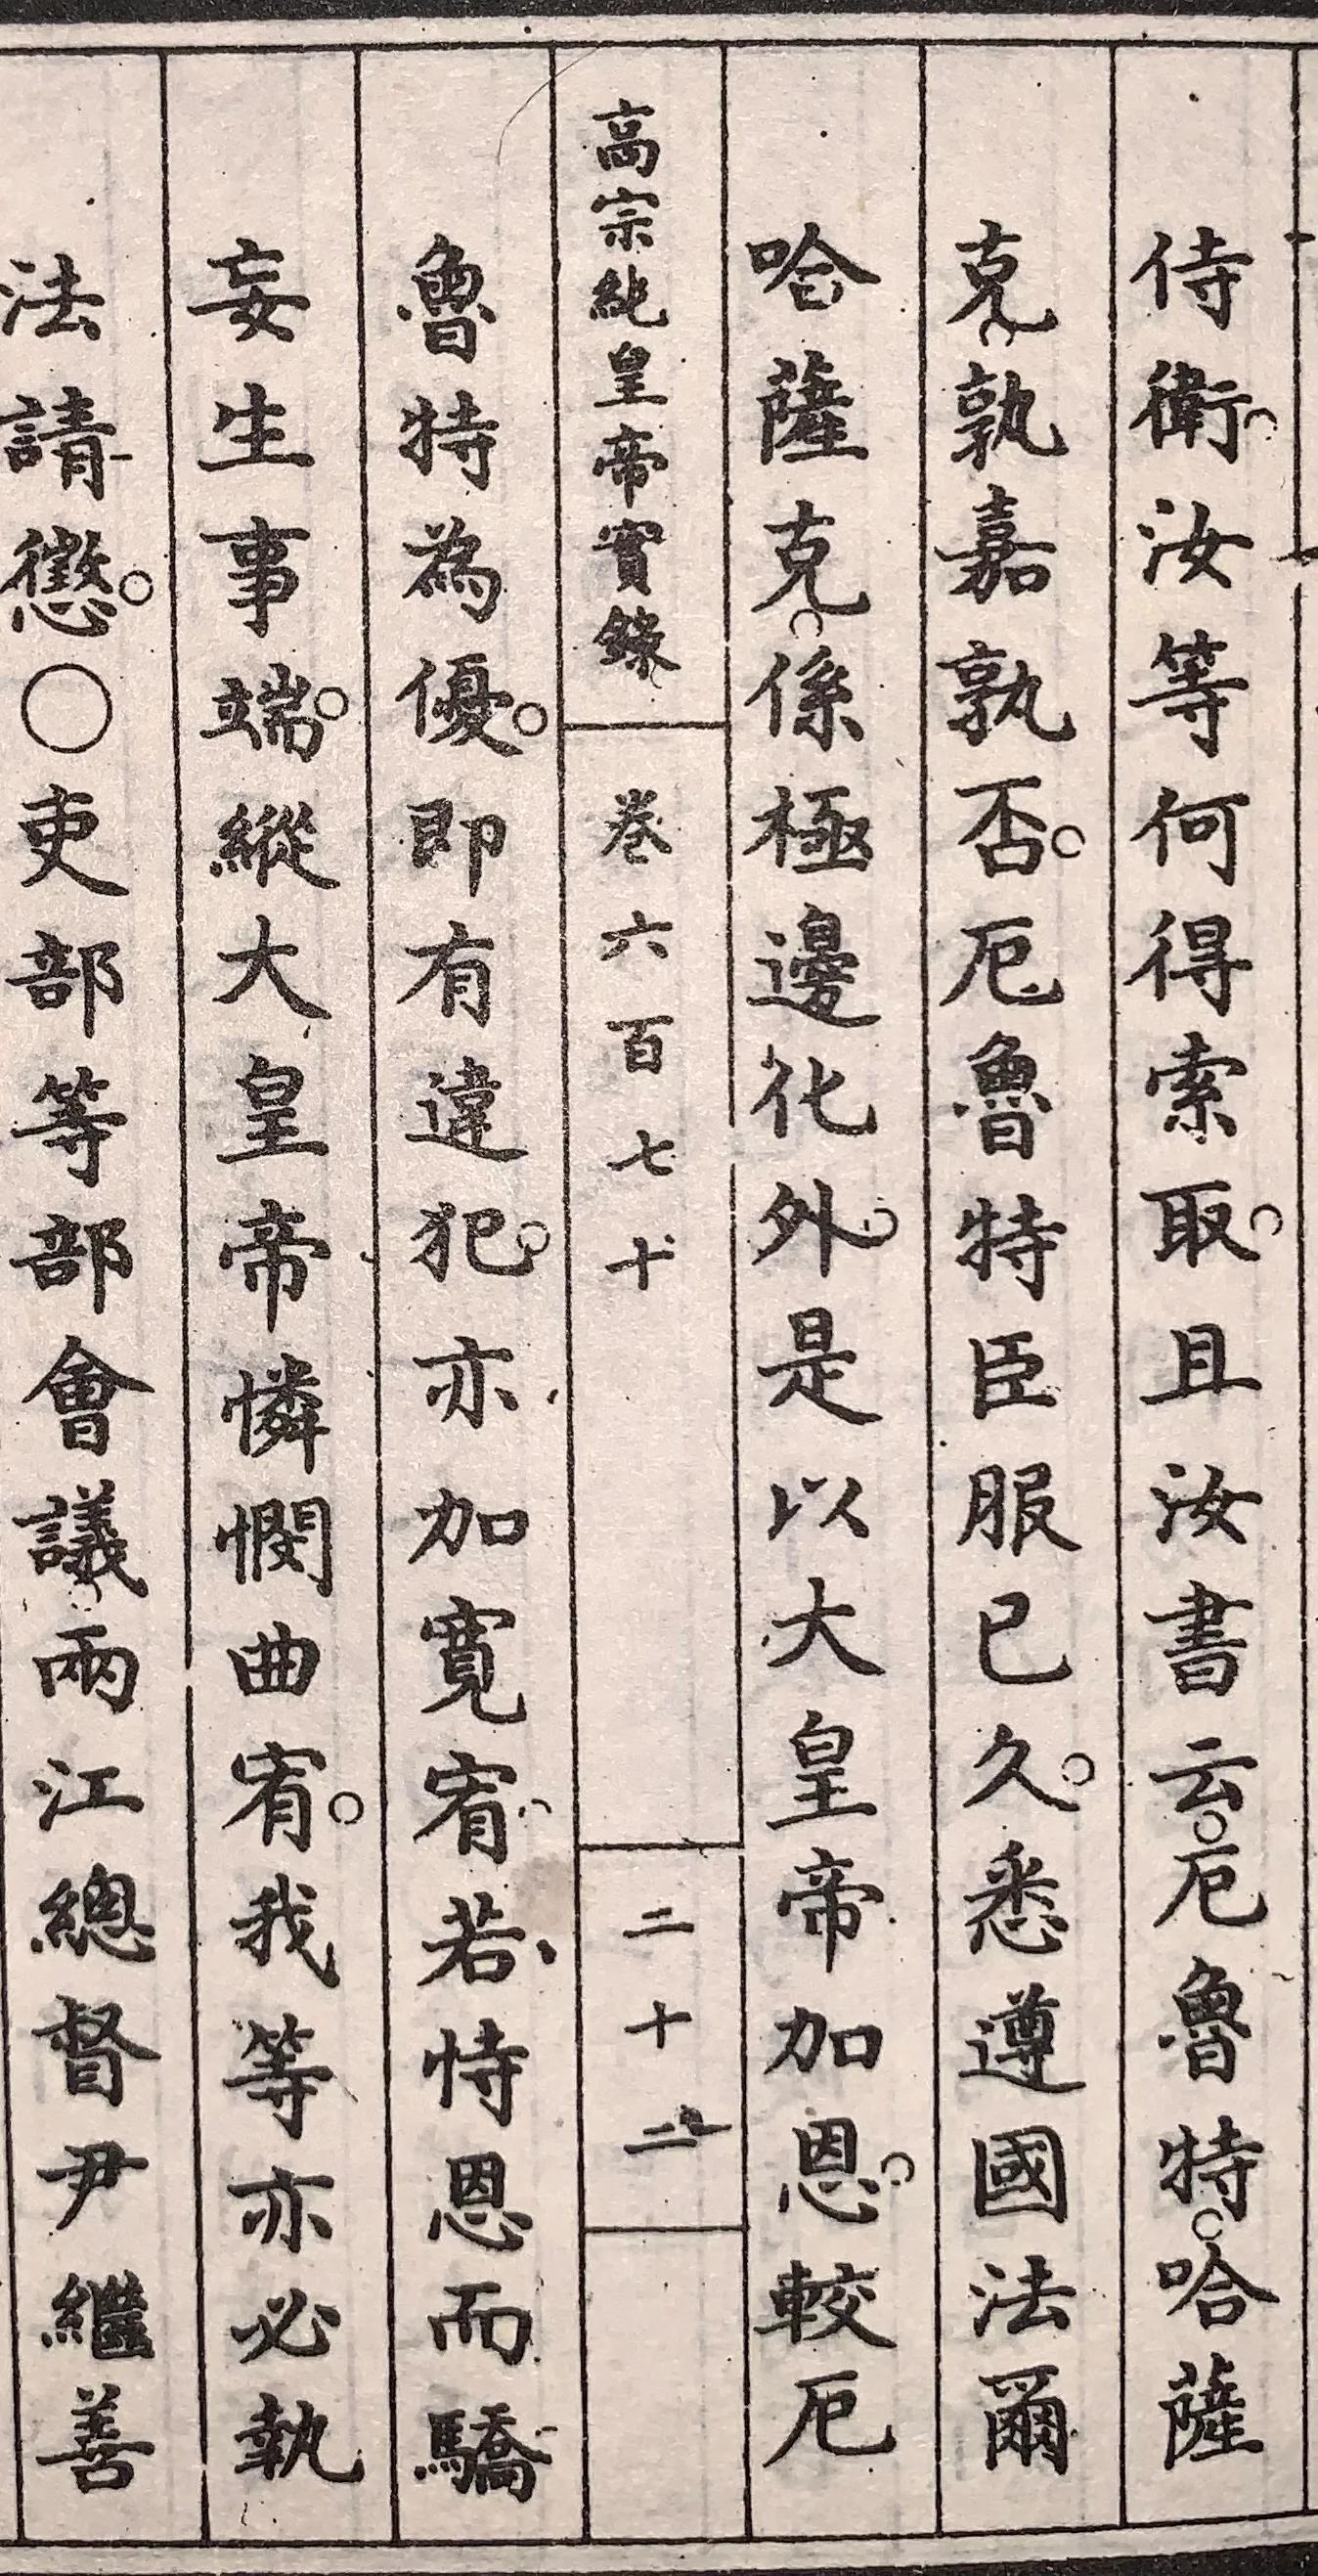 侍衛。汝等何得索取。且汝書云。厄魯特。哈薩
克。孰嘉孰否。厄魯特臣服已久。悉遵國法。爾
哈薩克。係極邊化外。是以大皇帝加恩。較厄
高宗純皇帝實錄 卷六百七十 二十二
魯特為優。即有違犯。亦加寬宥。若恃恩而驕。
妄生事端。縱大皇帝憐憫曲宥。我等亦必執
法請懲。○吏部等部會議。兩江總督尹繼善